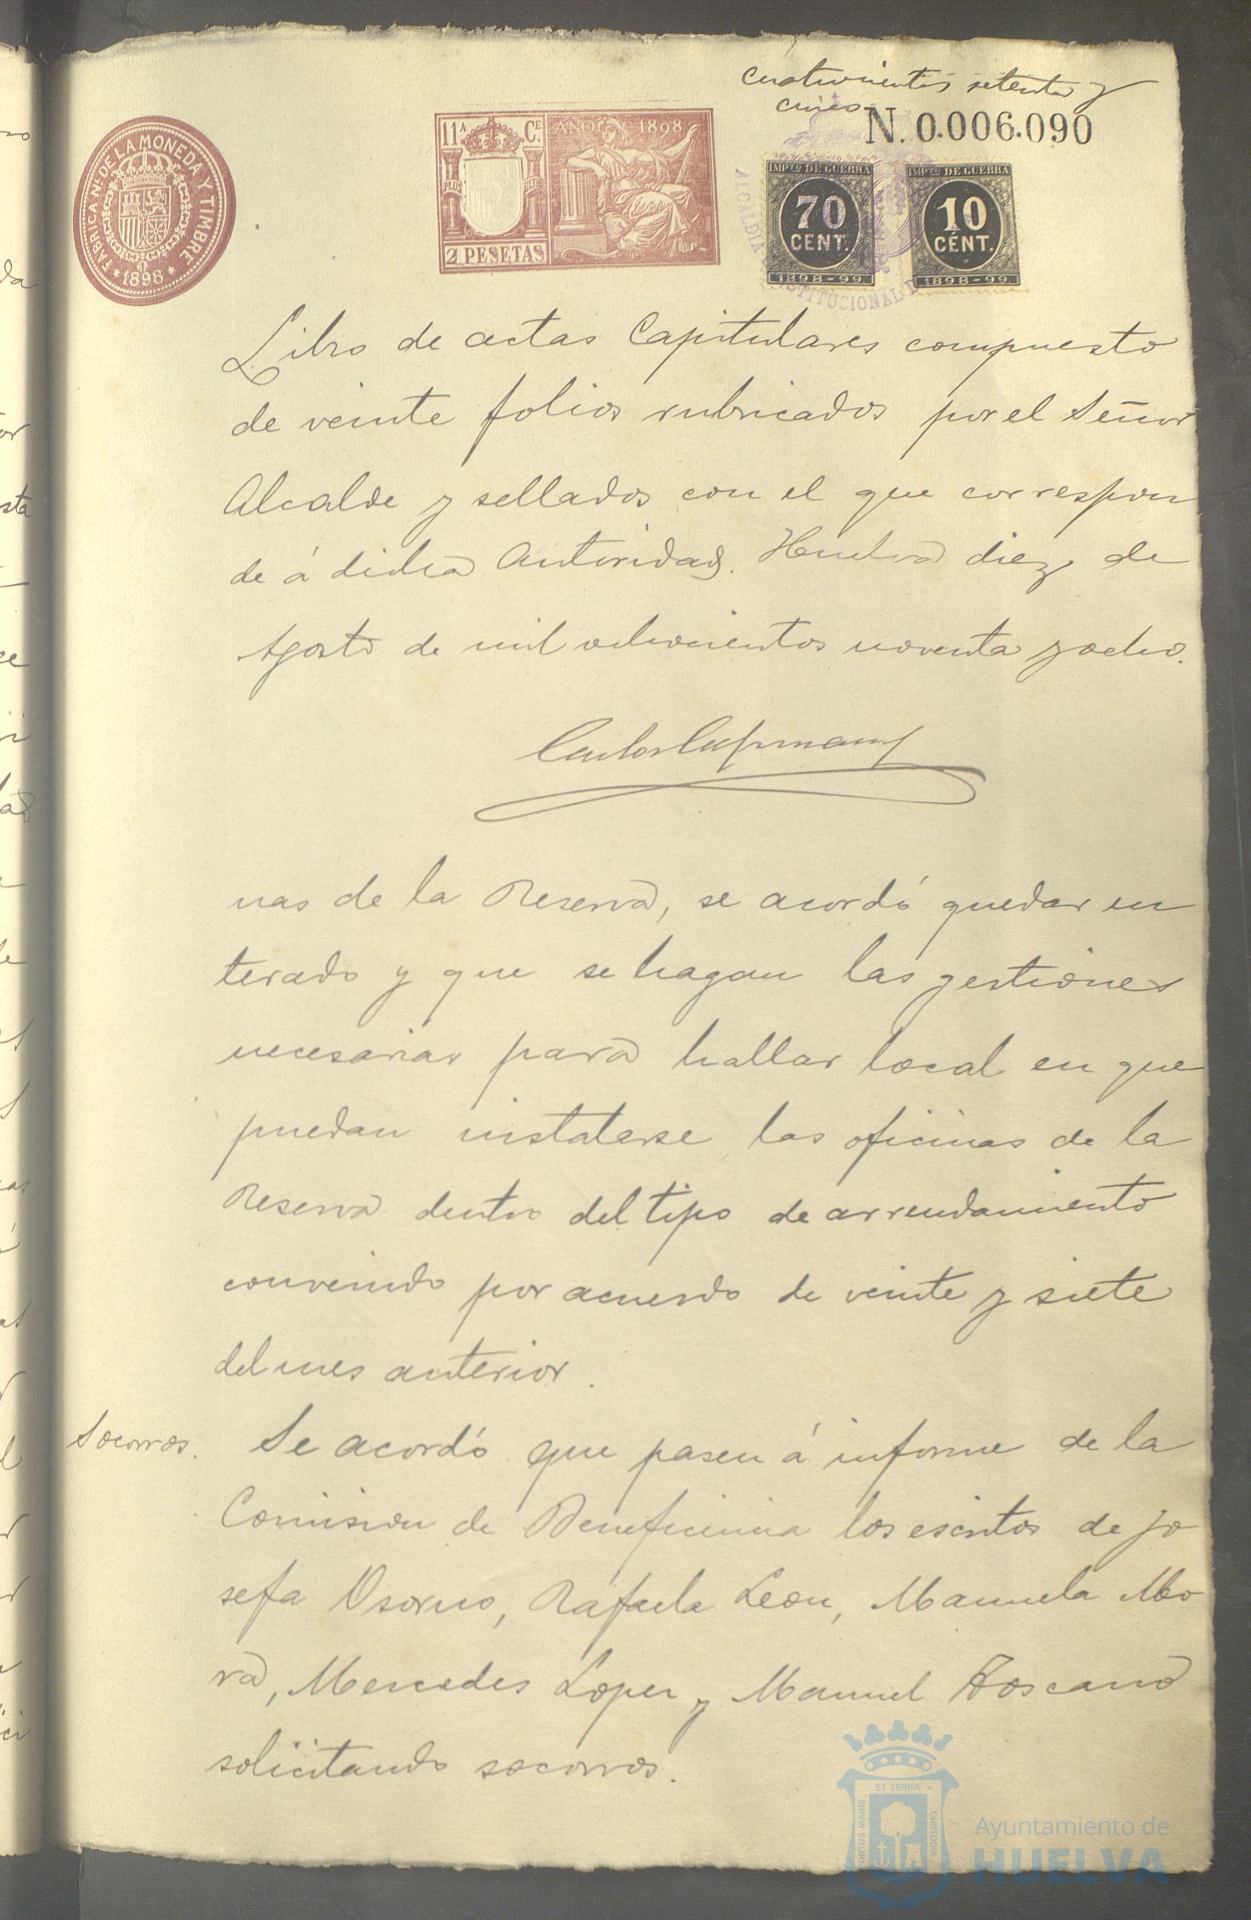 cuatrocientos setenta y
cinco
N. 0.006.090
FABRICA Nal DE LA MONEDA Y TIMBRE
* 1898 *
11ª Ce.
AÑO 1898
2 PESETAS
IMPTO DE GUERRA
70
CENT.
1898-99
IMPTO DE GUERRA
10
CÉNT.
1898-99
ALCALDIA
Libro de actas Capitulares compuesto
de veinte folios rubricados por el Señor
Alcalde y sellados con el que correspon
de á dicha Autoridad. Huelva diez de
Agosto de mil ochocientos noventa y ocho.
nas de la Reserva, se acordó quedar en
terado y que se hagan las gestiones
necesarias para hallar local en que
puedan instalarse las oficinas de la
Reserva dentro del tipo de arrendamiento
convenido por acuerdo de veinte y siete
del mes anterior.
Socorros.
Se acordó que pasen á informe de la
Comision de Beneficencia los escritos de Jo
sefa Osorno, Rafaela Leon, Manuela Mo
ra, Mercedes Lopez y Manuel Toscano
solicitando socorros.
PORTUS MARIS
ET TERRÆ
CUSTODIA
Ayuntamiento de
HUELVA